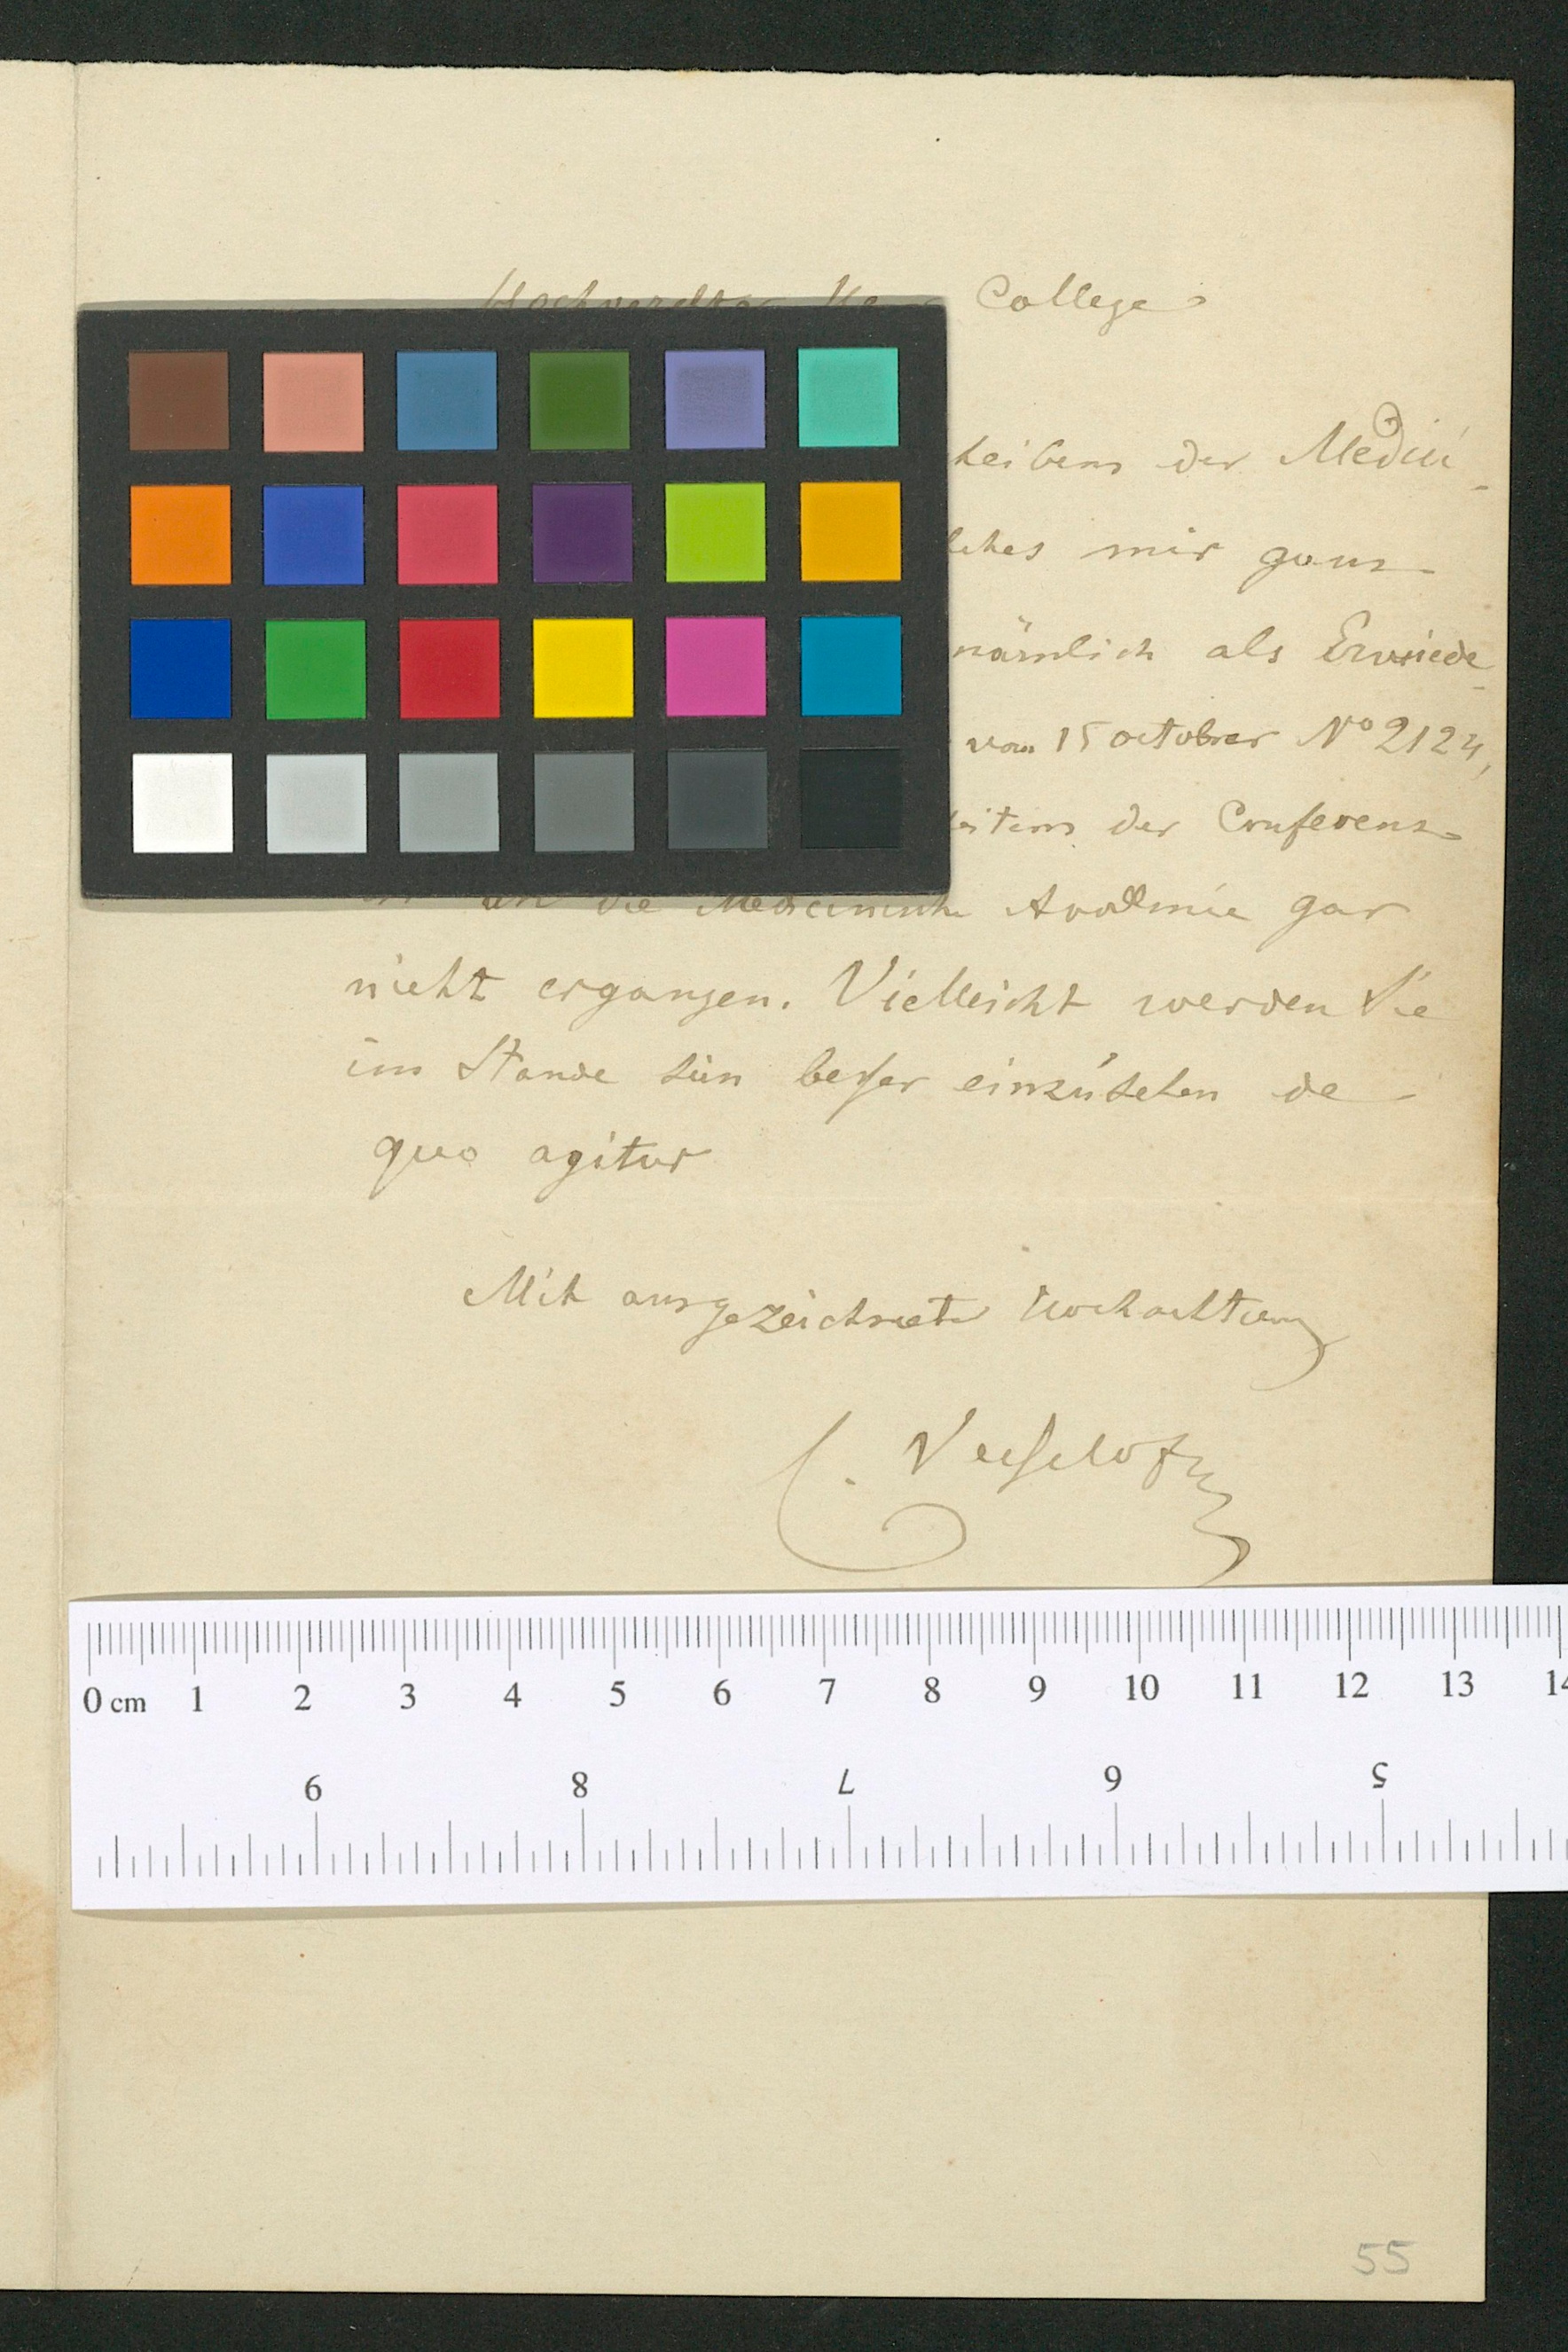 Hochverehrter Herr College
heibens der Medici-
lches mir ganz
nämlich als Erwiede-
vom 15 october Nº 2124,
seitens der Conferenz
an die Medicinische Academie gar
nicht ergangen. Vielleicht werden Sie
im Stande sein besser einzusehen de
quo agitur
Mit ausgezeichneter Hochachtung
C. Vesselofsky
0 cm 1 2 3 4 5 6 7 8 9 10 11 12 13 14
9 8 7 6 5
55